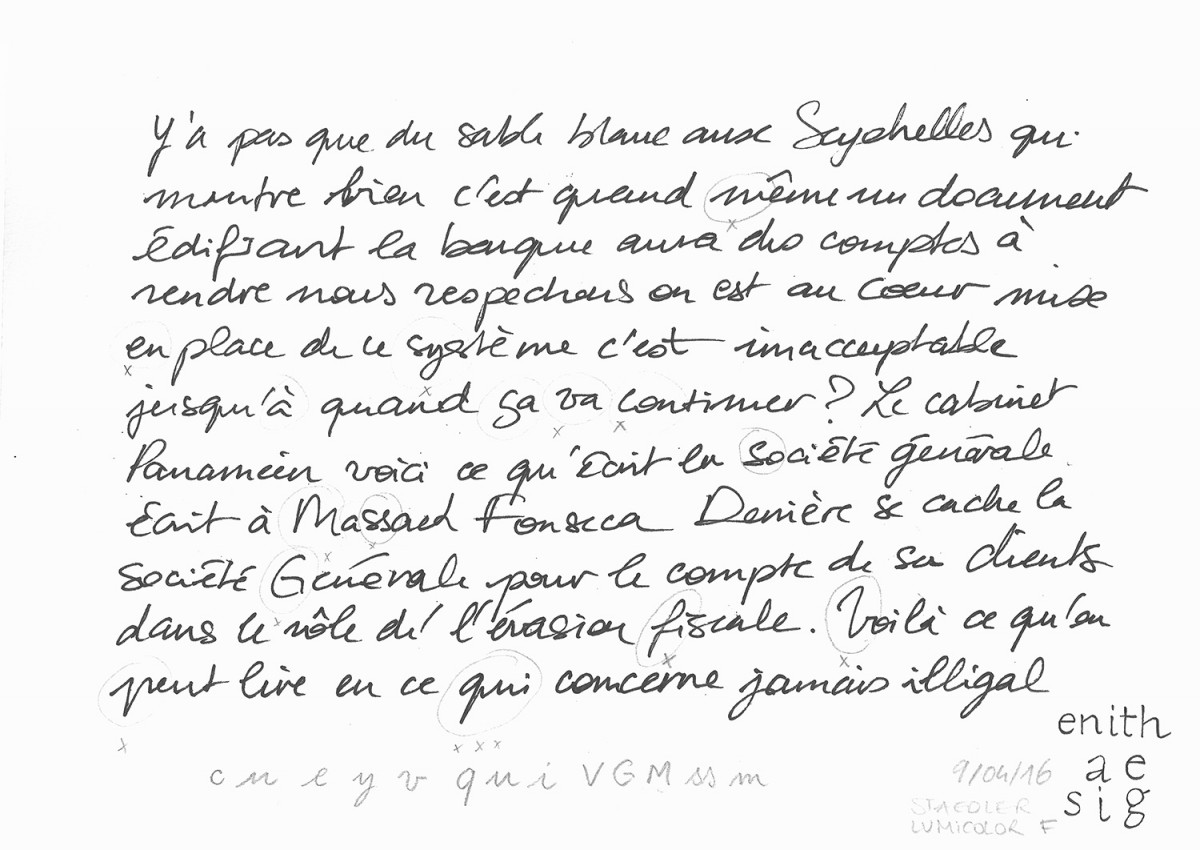 Y'a pas que du sable blanc aux Seychelles qui
montre bien c'est quand même un document
édifiant la banque aura des comptes à
rendre nous respectons on est au coeur mise
en place de ce système c'est inacceptable
jusqu'à quand ça va continuer ? Le cabinet
Panaméen voici ce qu'écrit la société générale
écrit à Massack Fonseca Derrière se cache la
société Générale pour le compte de ses clients
dans le rôle de l'évasion fiscale. Voilà ce qu'on
peut lire en ce qui concerne jamais illégal
c n e y v q u i V G M ss m
enith
ae
sig
9/04/16
STAEDLER
LUMICOLOR F